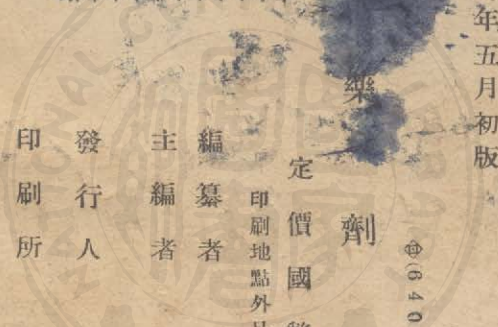 年五月初版
(640
藥劑
定價國
印刷地點外
編纂者
主編者
發行人
印刷所